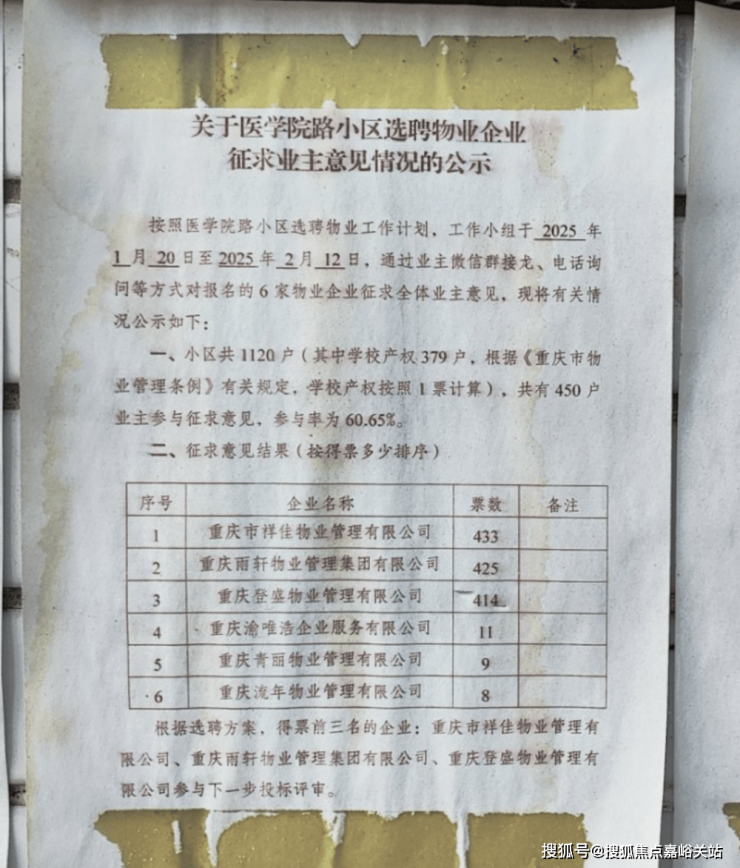 关于医学院路小区选聘物业企业
征求业主意见情况的公示
按照医学院路小区选聘物业工作计划，工作小组于 2025 年
1 月 20 日至 2025 年 2 月 12 日，通过业主微信群接龙、电话询
问等方式对报名的 6 家物业企业征求全体业主意见，现将有关情
况公示如下：
一、小区共 1120 户（其中学校产权 379 户，根据《重庆市物
业管理条例》有关规定，学校产权按照 1 票计算），共有 450 户
业主参与征求意见，参与率为 60.65%。
二、征求意见结果（按得票多少排序）
序号 企业名称 票数 备注
1 重庆市祥佳物业管理有限公司 433
2 重庆雨轩物业管理集团有限公司 425
3 重庆登盛物业管理有限公司 414
4 重庆渝唯浩企业服务有限公司 11
5 重庆青丽物业管理有限公司 9
6 重庆流年物业管理有限公司 8
根据选聘方案，得票前三名的企业：重庆市祥佳物业管理有
限公司、重庆雨轩物业管理集团有限公司、重庆登盛物业管理有
限公司参与下一步投标评审。
搜狐号@搜狐焦点嘉峪关站